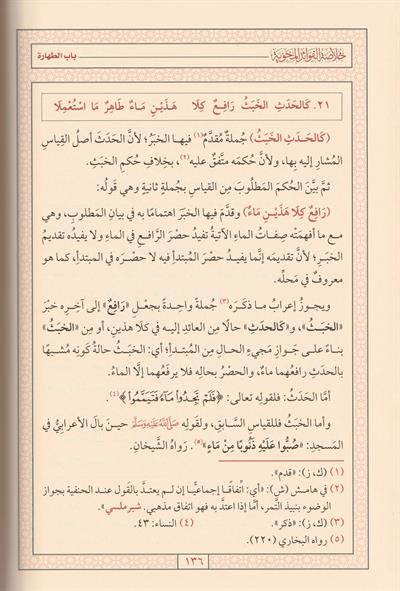 خلاصة الفوائد المحوية
باب الطهارة
٢١. كَالحَدَثِ الخَبَثُ رَافِعٌ كِلَا هَذَيْنِ مَاءٌ طَاهِرٌ مَا اسْتُعْمِلَا
(كَالحَدَثِ الخَبَثُ) جُملةٌ مُقدَّمٌ(١) فيهـا الخبَرُ؛ لأنَّ الحَدَثَ أصلُ القِياسِ
المُشارِ إليه بِها، ولأنَّ حُكمَه متَّفقٌ عليه(٢)، بخِلافِ حُكمِ الخبَثِ.
ثمَّ بيَّنَ الحُكمَ المَطلوبَ مِن القِياسِ بجُملةٍ ثانيةٍ وهي قَولُه:
(رَافِعٌ كِلَا هَذَيْـنِ مَاءٌ) وقدَّمَ فيها الخبَرَ اهتمامًا به في بيَانِ المَطلوبِ، وهي
مـع ما أفهمَتْه صِفـاتُ الماءِ الآتيةُ تفيدُ حصْرَ الرَّافعِ في الماءِ ولا يفيدُه تقديمُ
الخبَـرِ؛ لأنَّ تقديمَه إنَّما يفيـدُ حصْرَ المُبتدأِ فيه لا حصْـرَه في المبتدأِ، كما هو
معروفٌ في مَحلِّه.
ويجوزُ إعرابُ ما ذكَـرَه(٣) جُملةً واحدةً بجعْلِ «رَافِعٌ» إلى آخِرِه خبَرَ
«الخبَـثُ»، و«كَالحدَثِ» حالًا مِن العائدِ إليـه في كلَا هذَين، أو مِن «الخبَثُ»
بناءً علـى جَوازِ مَجيءِ الحالِ مِن المُبتـدأِ؛ أي: الخبَثُ حالةَ كَونِه مُشبَّهًا
بالحدَثِ رافعُهما ماءٌ، والحصْرُ بحالِه فلا يرفَعُهما إلَّا الماءُ.
أمَّا الحدَثُ: فلقولِه تعالى: ﴿فَلَمْ تَجِدُواْ مَآءً فَتَيَمَّمُواْ﴾(٤).
وأما الخبَثُ فللقياسِ السَّابقِ، ولقَولِه ﷺ حيـنَ بالَ الأعرابيُّ في
المَسجدِ: «صُبُّوا عَلَيْهِ ذَنُوبًا مِنْ مَاءٍ»(٥). رَواهُ الشَّيخانِ.
(١) (ك، ز): «قدم».
(٢) في هامش (ش): «أي: اتّفاقًا إجماعيًّا إن لم يعتدَّ بالقَول عند الحنفية بجواز
الوضوء بنبيذ التَّمر، أمَّا إذا اعتدَّ به فهو اتفاق مذهبي. شبرملسي».
(٣) (ك، ز): «ذكر».
(٤) النساء: ٤٣.
(٥) رواه البخاري (٢٢٠).
١٣٦